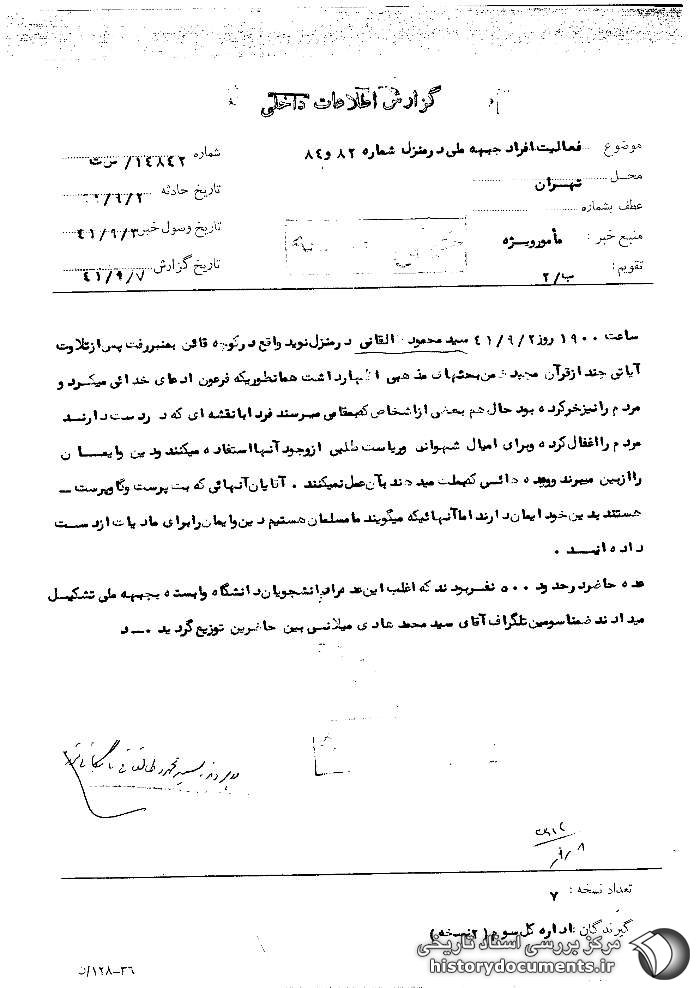 گزارش اطلاعات داخلی
موضوع فعالیت افراد جبهه ملی در منزل شماره ۸۲ و ۸۴
محل تهران
عطف بشماره
منبع خبر : مأمور ویژه
تقویم : ب/۲
شماره ۱۴۸۴۲/ س ت
تاریخ حادثه ۹/۲/
تاریخ وصول خبر ۴۱/۹/۳
تاریخ گزارش ۴۱/۹/۷
ساعت ۱۹۰۰ روز ۴۱/۹/۲ سید محمود طالقانی در منزل نوید واقع در کوچه قائن بمنبر رفت پس از تلاوت
آیاتی چند از قرآن مجید ضمن بحثهای مذهبی اظهار داشت همانطوریکه فرعون ادعای خدائی میکرد و
مردم را نیز خر کرده بود حال هم بعضی از اشخاص که بمقامی میرسند فردا با نقشه ای که در دست دارند
مردم را اغفال کرده و برای امیال شهوانی و ریاست طلبی از وجود آنها استفاده میکنند و دین و ایمان
را از بین میبرند و وعده هائی که بملت میدهند بآن عمل نمیکنند . آقایان آنهائی که بت پرست و گاو پرست –
هستند بدین خود ایمان دارند اما آنهائیکه میگویند ما مسلمان هستیم دین و ایمان را برای مادیات از دست
داده انــد .
عده حاضر در حدود ۵۰۰ نفر بودند که اغلب این عده را دانشجویان دانشگاه وابسته بجبهه ملی تشکیل
میدادند ضمنا سومین تلگراف آقای سید محمد هادی میلانی بین حاضرین توزیع گردید . – د
سید محمود طالقانی
تعداد نسخه : ۷
گیرندگان : اداره کل سوم (۲ نسخه)
۳۶–۱۲۸/ت
مرکز بررسی اسناد تاریخی
historydocuments.ir